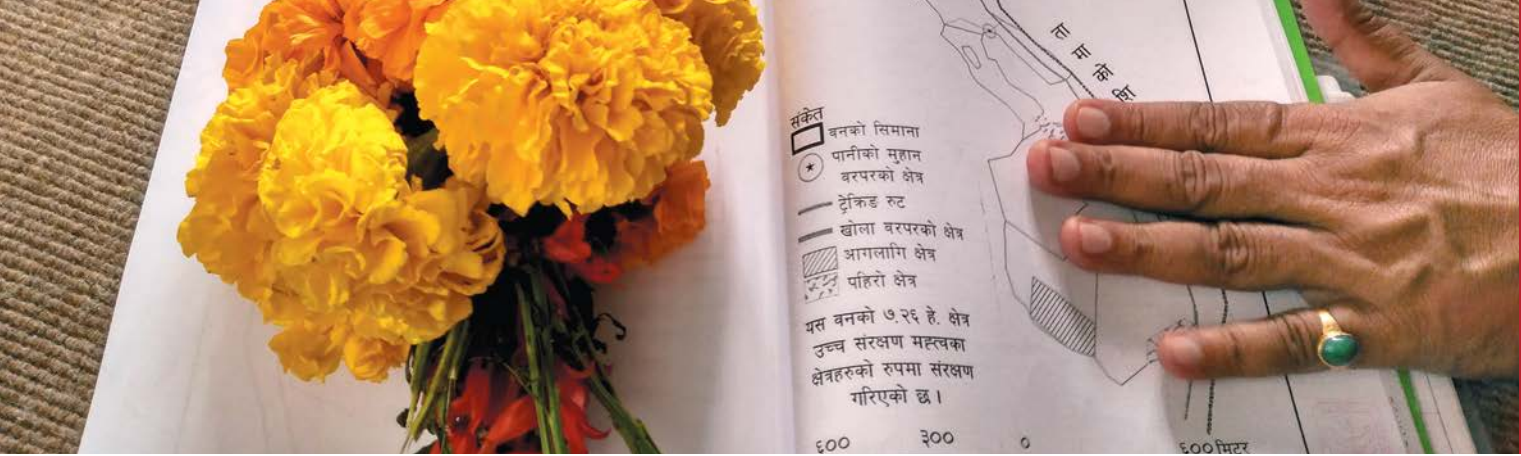 तामाकोशि
संकेत
वनको सिमाना
पानीको मुहान
वरपरको क्षेत्र
ट्रेकिङ रुट
खोला वरपरको क्षेत्र
आगलागि क्षेत्र
पहिरो क्षेत्र
यस वनको ७.२६ हे. क्षेत्र
उच्च संरक्षण महत्वका
क्षेत्रहरुको रुपमा संरक्षण
गरिएको छ।
६०० ३०० ० ६०० मिटर